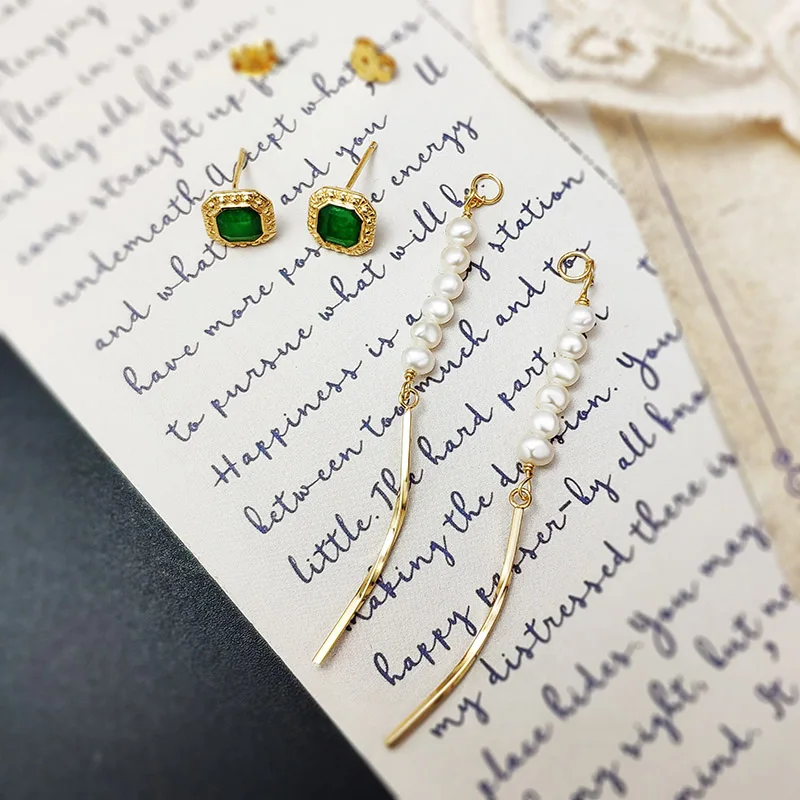 flew in side
and big all fat rain
come straight up from
underneath Accept what was
and what and you
have more pos e energy
to pursue what will be
Happiness is a y station
between too much and too
little. The hard part
making the de sion. You
happy poser-by all kno
my distressed there is
place hides. You may
my right, but
mind. It